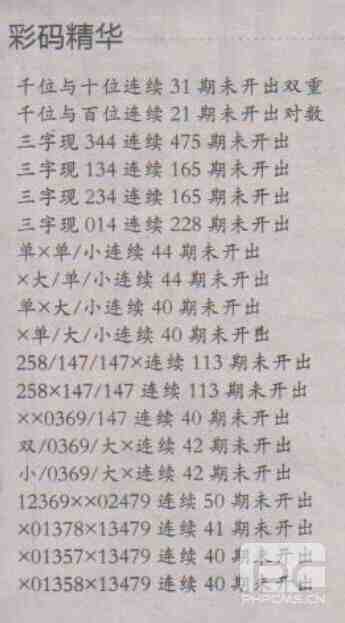 彩码精华
千位与十位连续 31 期未开出双重
千位与百位连续 21 期未开出对数
三字现 344 连续 475 期未开出
三字现 134 连续 165 期未开出
三字现 234 连续 165 期未开出
三字现 014 连续 228 期未开出
单×单/小连续 44 期未开出
×大/单/小连续 44 期未开出
单×大/小连续 40 期未开出
×单/大/小连续 40 期未开出
258/147/147×连续 113 期未开出
258×147/147 连续 113 期未开出
××0369/147 连续 40 期未开出
双/0369/大×连续 42 期未开出
小/0369/大×连续 42 期未开出
12369××02479 连续 50 期未开出
×01378×13479 连续 41 期未开出
×01357×13479 连续 40 期未开出
×01358×13479 连续 40 期未开出
PHPCMS.CN